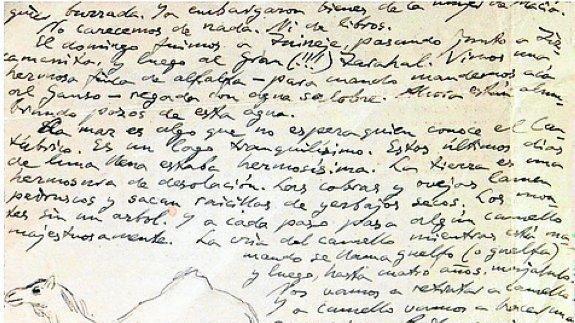 quier burrada. Ya embargaron bienes de la mujer de Maciá.
No carecemos de nada. Ni de libros.
El domingo fuimos a Tuineje, pasando junto a
camanita, y luego al gran (!!!!) Tarahal. Vimos una
hermosa finca de alfalfa – para cuando mandemos acá
al Ganso – regada con agua salobre. Ahora están alum-
brando pozos de esta agua.
La mar es algo que no espera quien conoce el Can-
tábrico. Es un lago tranquilísimo. Estos últimos días
de luna llena estaba hermosísima. La tierra es una
hermosura de desolación. Las cabras y ovejas lamen
pedruscos y sacan raicillas de yerbajos secos. Los mon-
tes sin un arbol. Y a cada paso pasa algún camello
majestuosamente. La cría del camello mientras está ma-
mando se llama guelfo (o güelfa)
y luego, hasta cuatro años,
Nos vamos a retratar a camello.
Y a camello vamos a hacer una